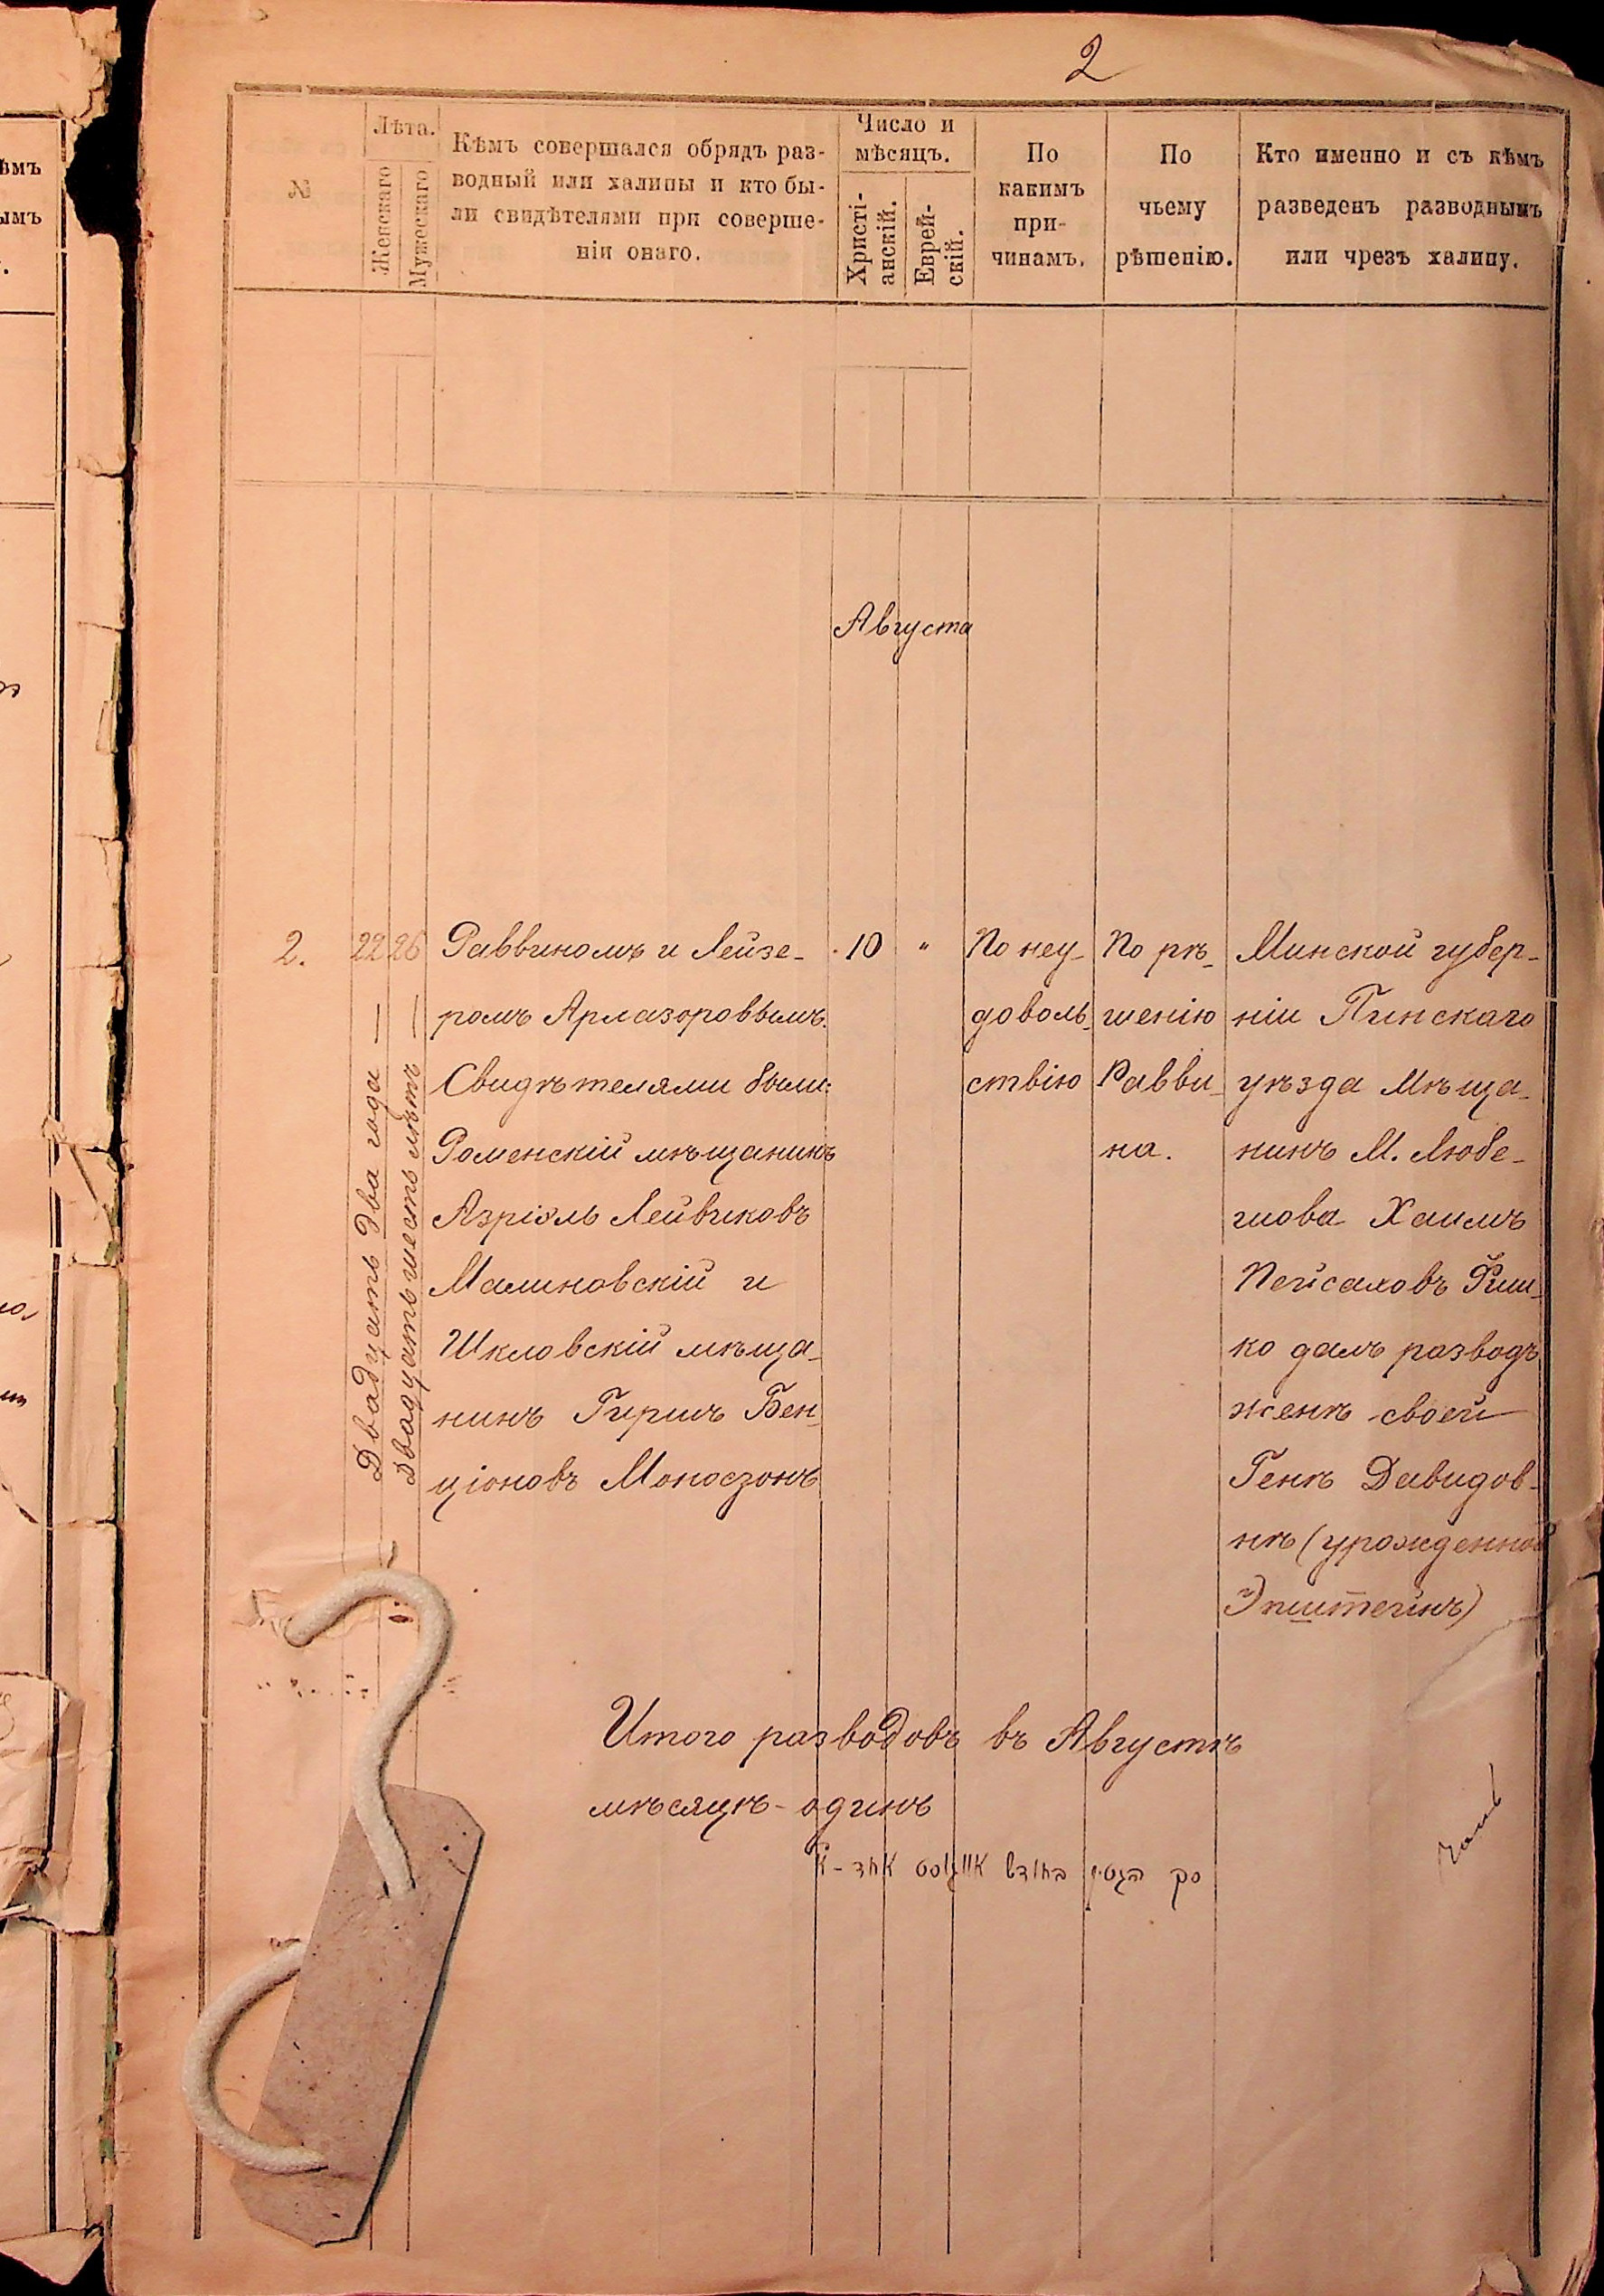 2
№
Лѣта.
Женскаго
Мужескаго
Кѣмъ совершался обрядъ раз-
водный или халицы и кто бы-
ли свидѣтелями при соверше-
ніи онаго.
Число и
мѣсяцъ.
Христі-
анскій.
Еврей-
скій.
По
какимъ
при-
чинамъ.
По
чьему
рѣшенію.
Кто именно и съ кѣмъ
разведенъ разводнымъ
или чрезъ халицу.
Августа
2.
22
26
Двадцать два года —
Двадцать шесть лѣтъ —
Раввиномъ и Лейзе-
ромъ Арлазоровымъ.
Свидѣтелями были:
Роменскій мѣщанинъ
Азріэль Лейвиковъ
Малиновскій и
Шкловскій мѣща-
нинъ Гиршъ Бен
ціоновъ Моносзонъ
10 "
По неу-
доволь-
ствію
По рѣ-
шенію
Равви-
на.
Минской губер-
ніи Пинскаго
уѣзда Мѣща-
нинъ М. Любе-
шова Хаимъ
Пейсаховъ Фиш-
ко далъ разводъ
женѣ своей
Генѣ Давидов-
нѣ (урожденной
Эпштейнъ)
Итого разводовъ въ Августѣ
мѣсяцѣ - одинъ
סך הגטין בחודש אויגוסט אחד - א